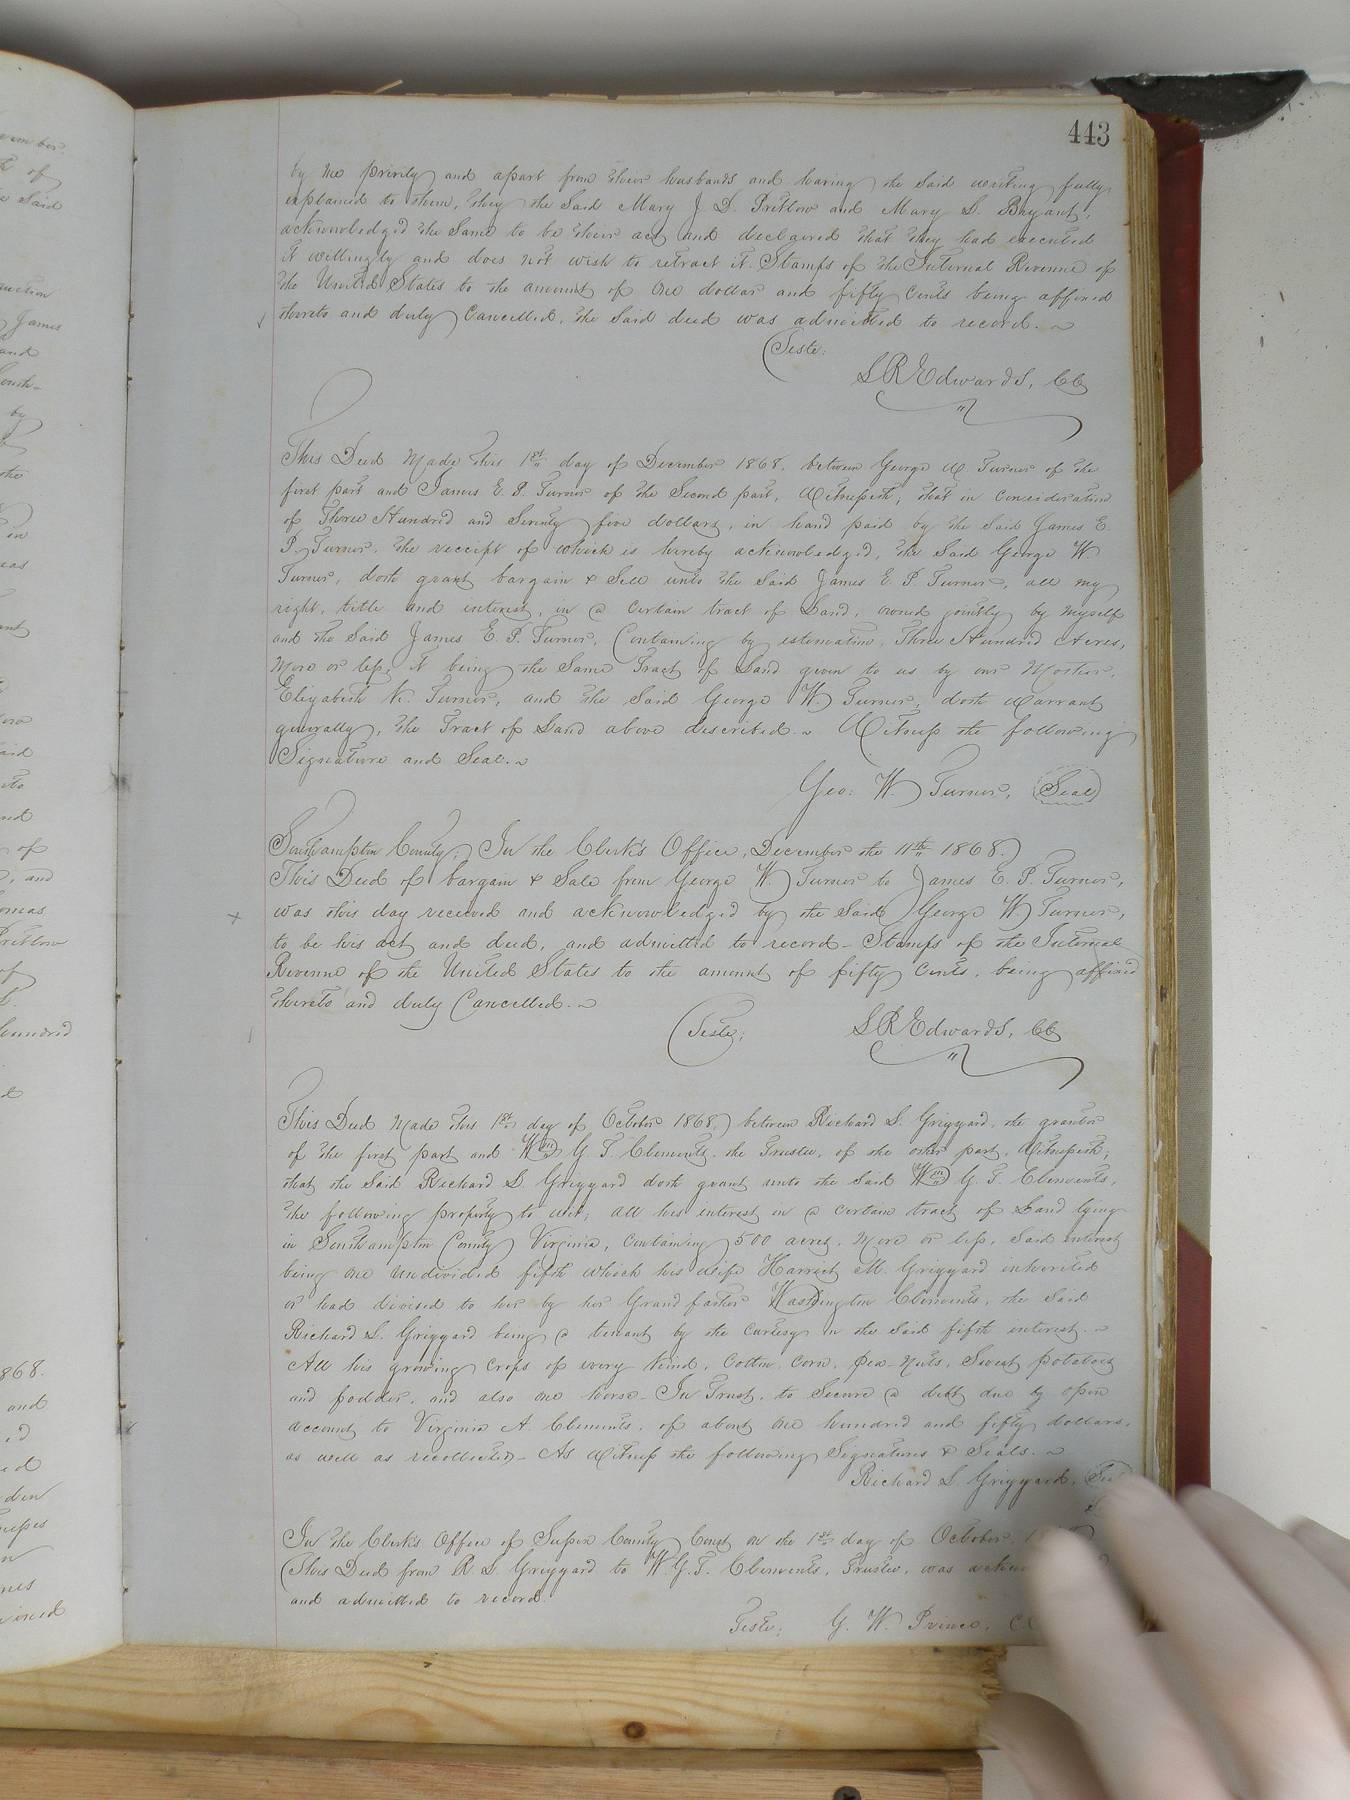 443
by me privily and apart from their husbands and having the said writing fully
explained to them, they the said Mary J. D. Pretlow and Mary S. Bryant,
acknowledged the same to be their act and declared that they had executed
it willingly and does not wish to retract it. Stamps of the Internal Revenue of
the United States to the amount of one dollar and fifty cents being affixed
thereto and duly cancelled, the said deed was admitted to record.
Teste:
L R Edwards, CC
This Deed Made this 1st day of December 1868, between George W Turner of the
first part and James E. P. Turner of the second part, Witnesseth, that in consideration
of Three Hundred and Seventy five dollars, in hand paid by the said James E.
P. Turner, the receipt of which is hereby acknowledged, the said George W
Turner, doth grant bargain & sell unto the said James E. P. Turner, all my
right, title and interest, in a certain tract of Land, owned jointly by myself
and the said James E. P. Turner, Containing by estimation, Three Hundred Acres,
More or less, it being the same Tract of Land given to us by our Mother,
Elizabeth K. Turner, and the said George W. Turner, doth warrant
generally, the Tract of Land above described. Witness the following
Signature and Seal.
Geo: W. Turner, Seal
Southampton County: In the Clerk's Office, December the 11th 1868.
This Deed of bargain & sale from George W. Turner to James E. P. Turner,
was this day received and acknowledged by the said George W. Turner,
to be his act and deed, and admitted to record - Stamps of the Internal
Revenue of the United States to the amount of fifty cents, being affixed
thereto and duly Cancelled.
Teste: L R Edwards, CC
This Deed Made this 1st day of October 1868, between Richard S. Griggard, the grantor
of the first part and Wm G. T. Clements, the Trustee, of the other part, Witnesseth;
that the said Richard S. Griggard doth grant unto the said Wm G. T. Clements,
the following property to wit; all his interest in a certain tract of Land lying
in Southampton County Virginia, containing 500 acres, more or less, said interest
being one undivided fifth which his wife Harriet M. Griggard inherited
or had devised to her by her Grandfather Washington Clements, the said
Richard S. Griggard being a tenant by the curtesy in the said fifth interest.
All his growing crops of every kind, Cotton, corn, pea-nuts, Sweet potatoes
and fodder, and also one horse - In Trust, to secure a debt due by open
account to Virginia A. Clements, of about one hundred and fifty dollars,
as well as recollected - As witness the following Signatures & Seals.
Richard S. Griggard,
In the Clerk's Office of Sussex County Court on the 1st day of October
This Deed from R. S. Griggard to W. G. T. Clements, Trustee, was
and admitted to record.
Teste: G. W. Prince,